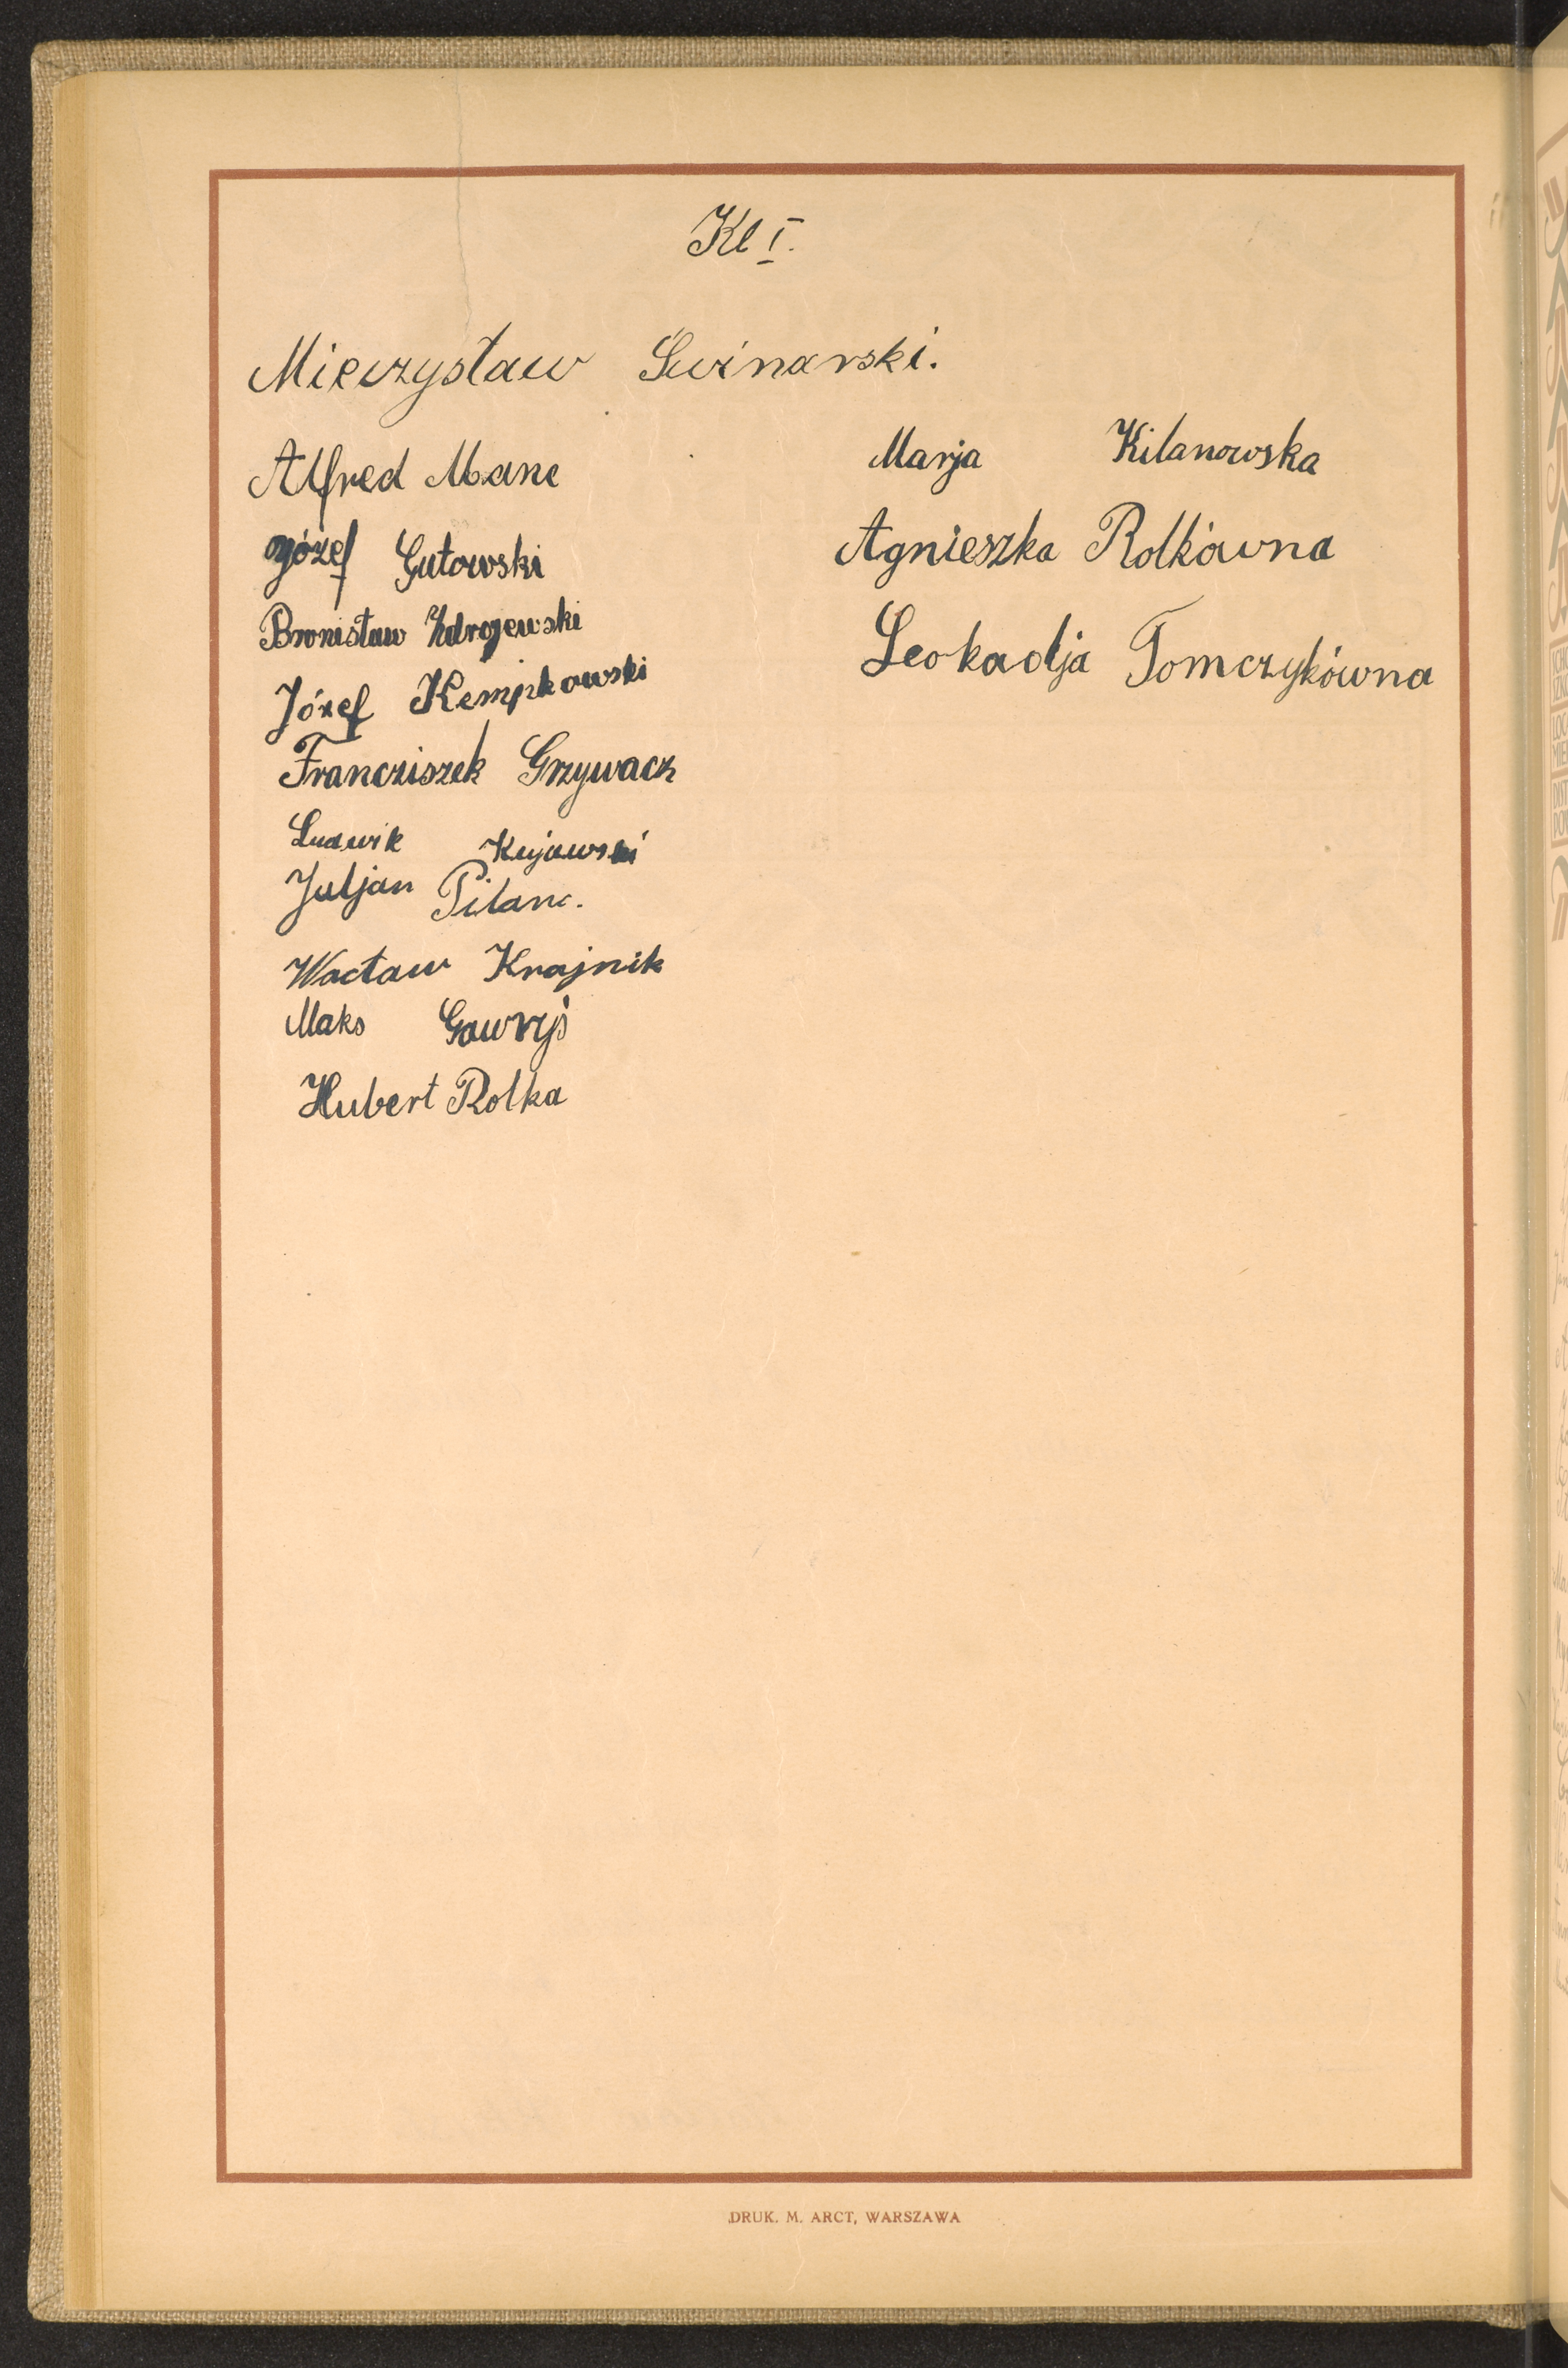 Kl I.
Mieczysław Świnarski.
Alfred Manc
Józef Gutowski
Bronisław Zdrojewski
Józef Kempkowski
Franciszek Grzywacz
Ludwik Kujawski
Juljan Pilanc.
Wacław Krajnik
Maks Gawryś
Hubert Rolka
Marja Kilanowska
Agnieszka Rolkówna
Leokadja Tomczykówna
DRUK. M. ARCT, WARSZAWA